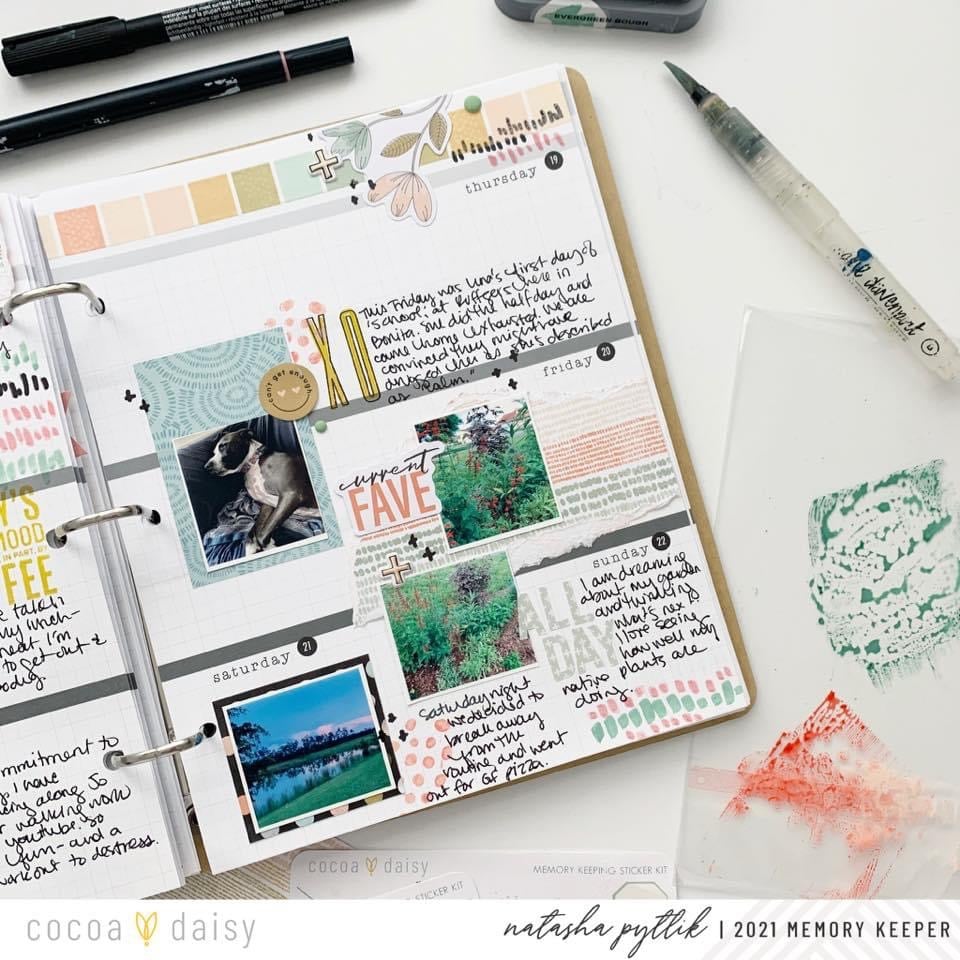 EVERGREEN BOUGH
thursday 19
This Friday was Luna's first day of
"school" at Ruffsers here in
Bonita. She did the half day and
came home exhausted. We are
convinced they must have
drugged her as she's described
as "calm."
XO
can't get enough
friday 20
current
FAVE
sunday 22
I am dreaming
about my garden
and thinking
what's next.
I love seeing
how well my
native plants are
doing.
ALL
DAY
saturday 21
Saturday night
we decided to
break away
from the
routine and went
out for GF pizza.
Y'S
MOOD
IN PART, BY
FEE
mmitment to
I have
along so
walking work
youtube. So
fun - and a
workout to destress.
cocoa daisy
MEMORY KEEPING STICKER KIT
STICKER KIT
cocoa daisy
natasha pyttlik | 2021 MEMORY KEEPER